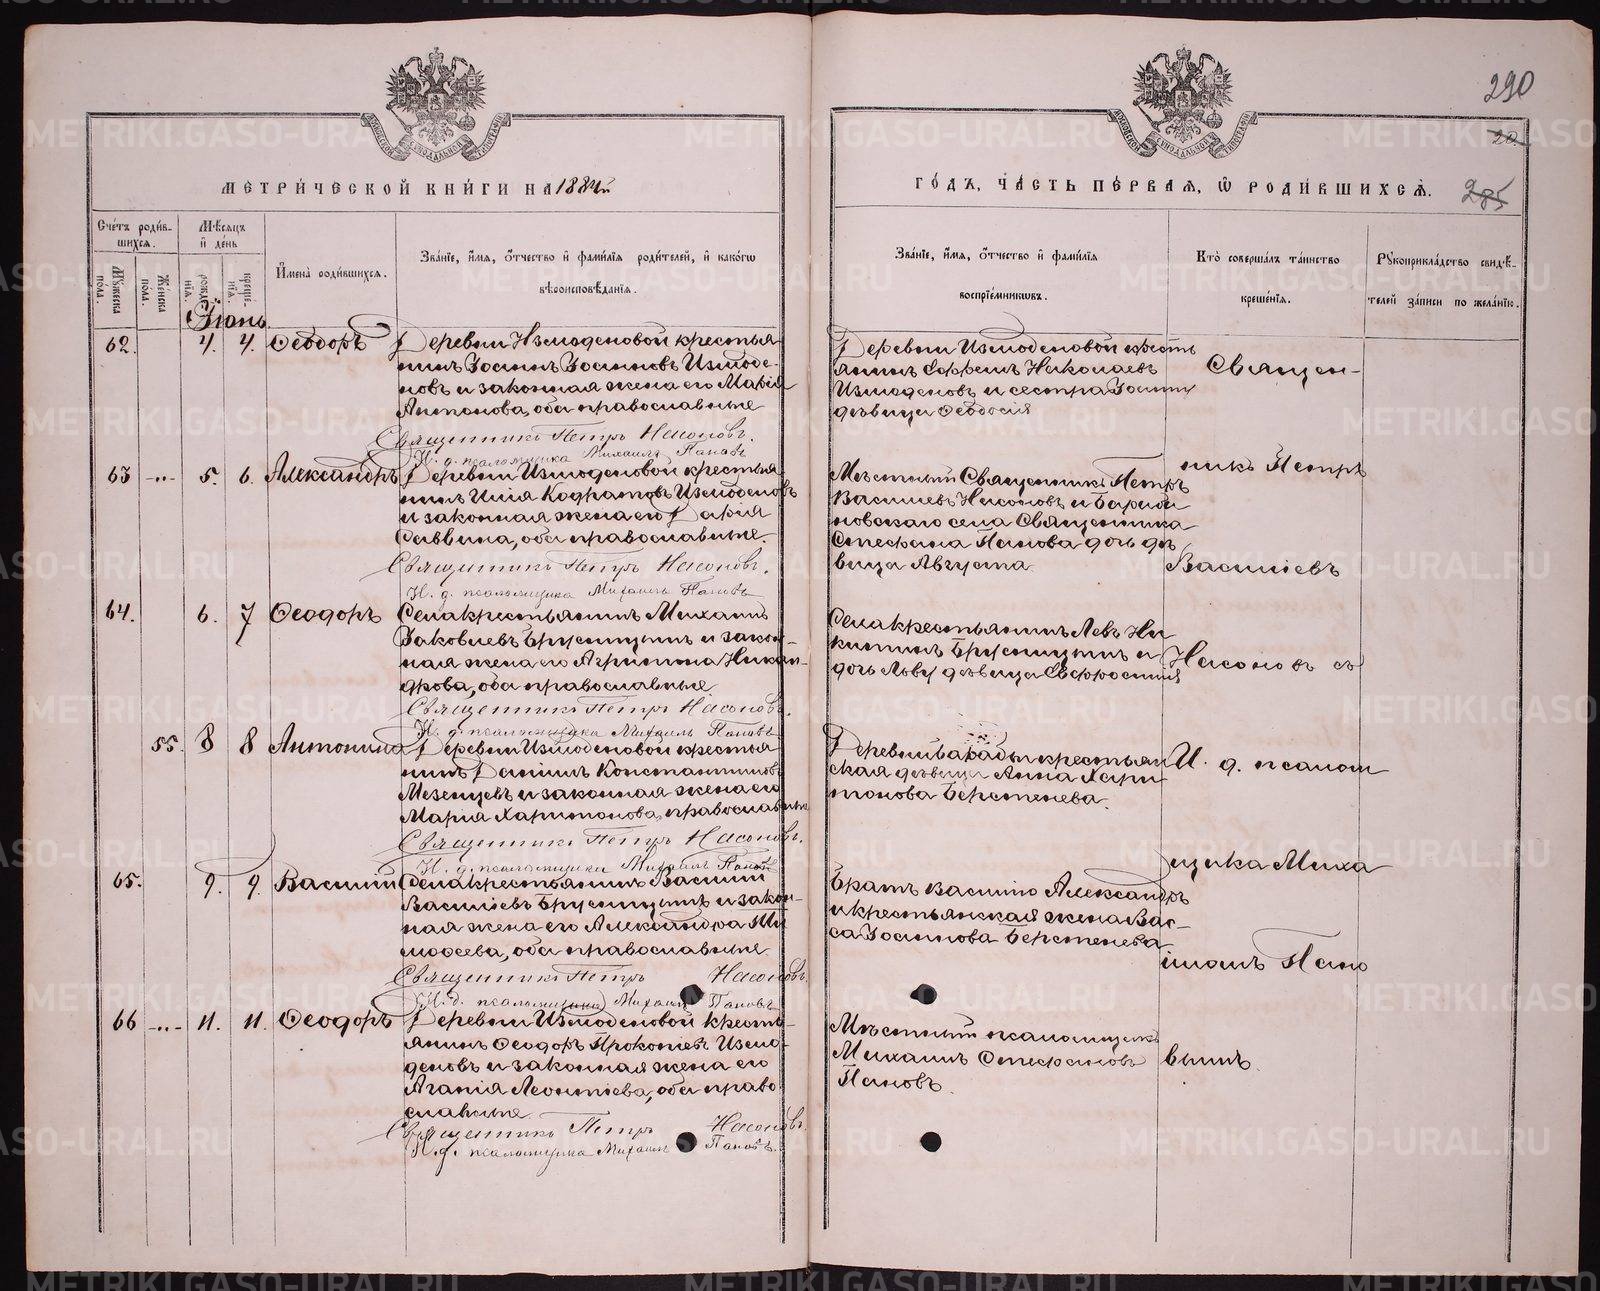 290
20.
285
МЕТРИЧЕСКОЙ КНИГИ НА 1884й
ГОДЪ, ЧАСТЬ ПЕРВАЯ, Ѡ РОДИВШИХСЯ.
Счетъ родившихся.
Мужеска пола.
Женска пола.
Мѣсяцъ и день
рожденія.
крещенія.
Имена родившихся.
Званіе, имя, отчество и фамилія родителей, и какого
вѣроисповѣданія.
Званіе, имя, отчество и фамилія
воспріемниковъ.
Кто совершалъ таинство
крещенія.
Рукоприкладство свидѣ-
телей записи по желанію.
Іюнь.
62. 4. 4. Ѳеодоръ
Деревни Измоденовой крестья
нинъ Іосифъ Іосифовъ Измоде-
новъ и законная жена его Марія
Антонова, оба православные
Священникъ Петръ Насоновъ.
И. д. псаломщика Михаилъ Пановъ
Деревни Измоденовой кресть
янинъ Ефремъ Николаевъ
Измоденовъ и сестра Іосифу
дѣвица Ѳеодосія
63 -"- 5. 6. Александръ
Деревни Измоденовой крестья
нинъ Илія Кодратовъ Измоденовъ
и законная жена его Дарія
Саввина, оба православные.
Священникъ Петръ Насоновъ.
И. д. псаломщика Михаилъ Пановъ
Мѣстный Священникъ Петръ
Васильевъ Насоновъ и
новскаго села Священника
Стефана Панова дочь дѣ
вица Августа
64. 6. 7 Ѳеодоръ
Села крестьянинъ Михаилъ
Іаковлевъ Брусницынъ и закон-
ная жена его Агрипина Никан-
дрова, оба православные.
Священникъ Петръ Насоновъ.
И. д. псаломщика Михаилъ Пановъ
Села крестьянинъ Левъ Ни
китинъ Брусницынъ и
дочь Льву дѣвица Евфросинія
55. 8 8 Антонина
Деревни Измоденовой крестья
нинъ Даніилъ Константиновъ
Мезенцевъ и законная жена его
Марія Харитонова, православные
Священникъ Петръ Насоновъ.
И. д. псаломщика Михаилъ Пановъ
Деревни крестьян
ская дѣвица Анна Хари
тонова Берстенева.
65. 9. 9. Василій
Села крестьянинъ Василій
Васильевъ Брусницынъ и закон-
ная жена его Александра Ти
моѳеева, оба православные
Священникъ Петръ Насоновъ.
И. д. псаломщика Михаилъ Пановъ
Братъ Василію Александръ
и крестьянская жена Вас-
са Іосифова Берстенева
66 -"- 11. 11. Ѳеодоръ
Деревни Измоденовой кресть-
янинъ Ѳеодоръ Прокопіевъ Измо-
деновъ и законная жена его
Агапія Леонтіева, оба право
славные.
Священникъ Петръ Насоновъ.
И. д. псаломщика Михаилъ Пановъ.
Мѣстный псаломщикъ
Михаилъ Стефановъ
Пановъ.
Священ-
никъ Петръ
Васильевъ
Насоновъ съ
И. д. псалом
щика Миха
иломъ Пано
вымъ.